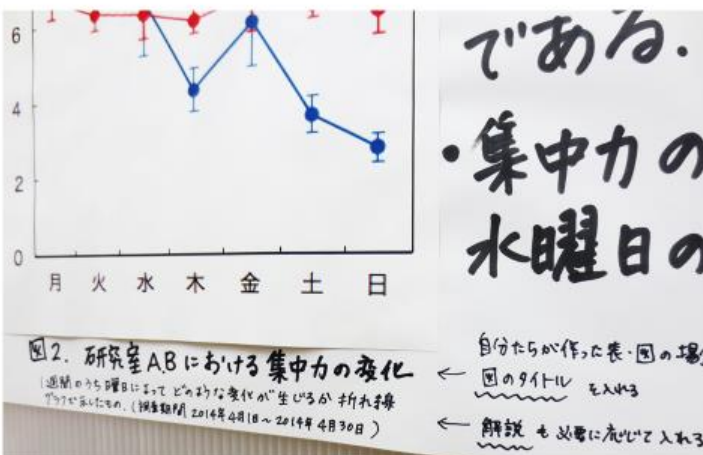 6
4
2
0
月 火 水 木 金 土 日
である.
・集中力の
水曜日の
図2. 研究室A,Bにおける集中力の変化
1週間のうち曜日によってどのような変化が生じるか折れ線
グラフで示したもの.(調査期間 2014年4月1日～2014年4月30日)
自分たちが作った表・図の場
← 図のタイトル を入れる
← 解説 も必要に応じて入れる